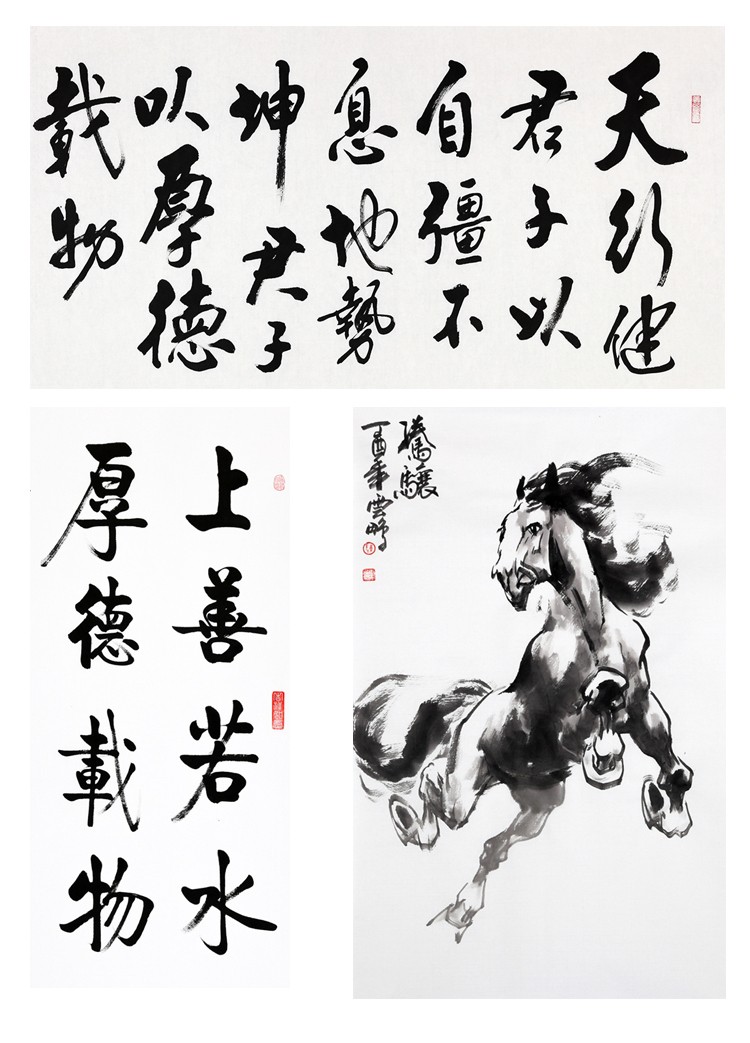 天行健
君子以
自彊不
息地勢
坤君子
以厚德
載物
上善若水
厚德載物
騰驤
丁酉年雲鵬